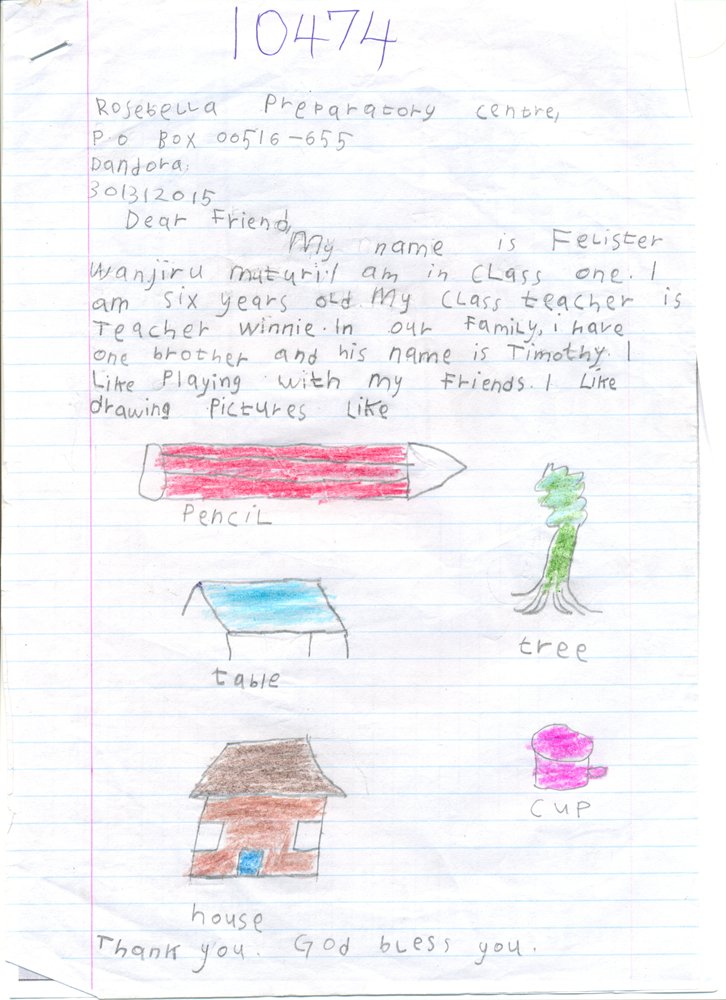 10474
Rosebella Preparatory centre,
P.o Box 00516-655
Dandora.
30/3/2015
Dear Friend,
My name is Felister
Wanjiru muturi.I am in class one. I
am six years old. My class teacher is
Teacher Winnie. In our Family, i have
one brother and his name is Timothy. I
Like Playing with my Friends. I Like
drawing Pictures Like
Pencil
tree
table
cup
house
Thank you. God bless you.